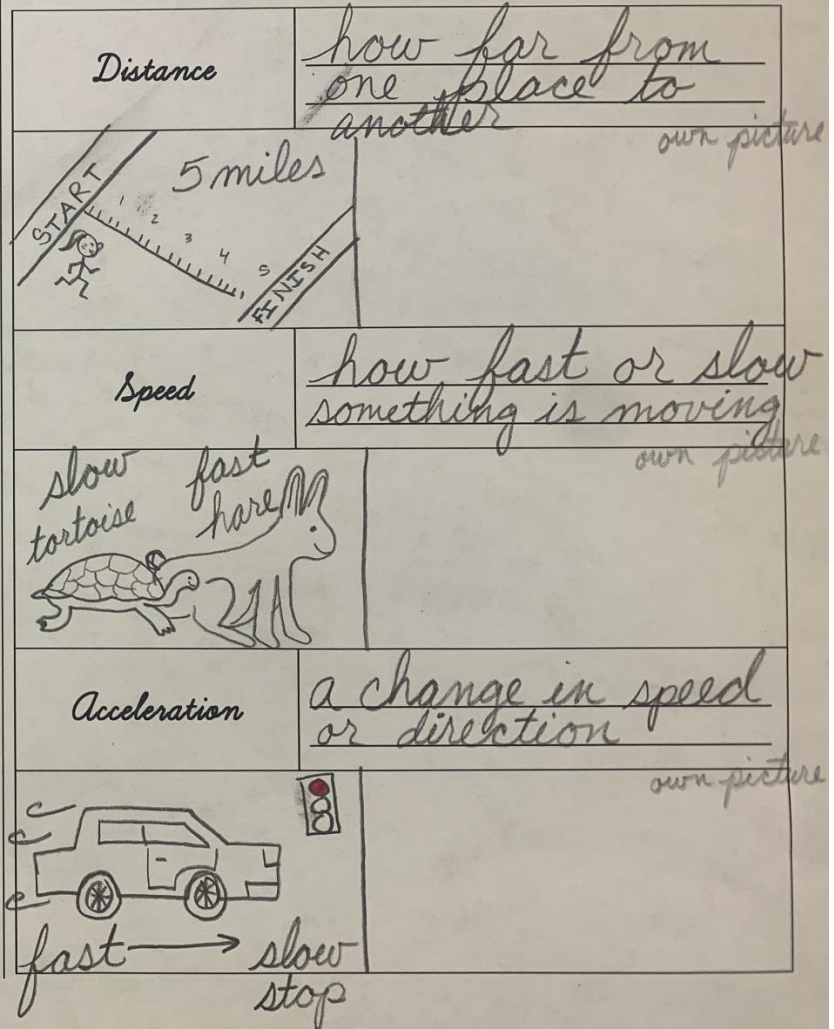 Distance
how far from
one place to
another
own picture
5 miles
START
1 2 3 4 5
FINISH
Speed
how fast or slow
something is moving
own picture
slow fast
tortoise hare
Acceleration
a change in speed
or direction
own picture
fast → slow
stop